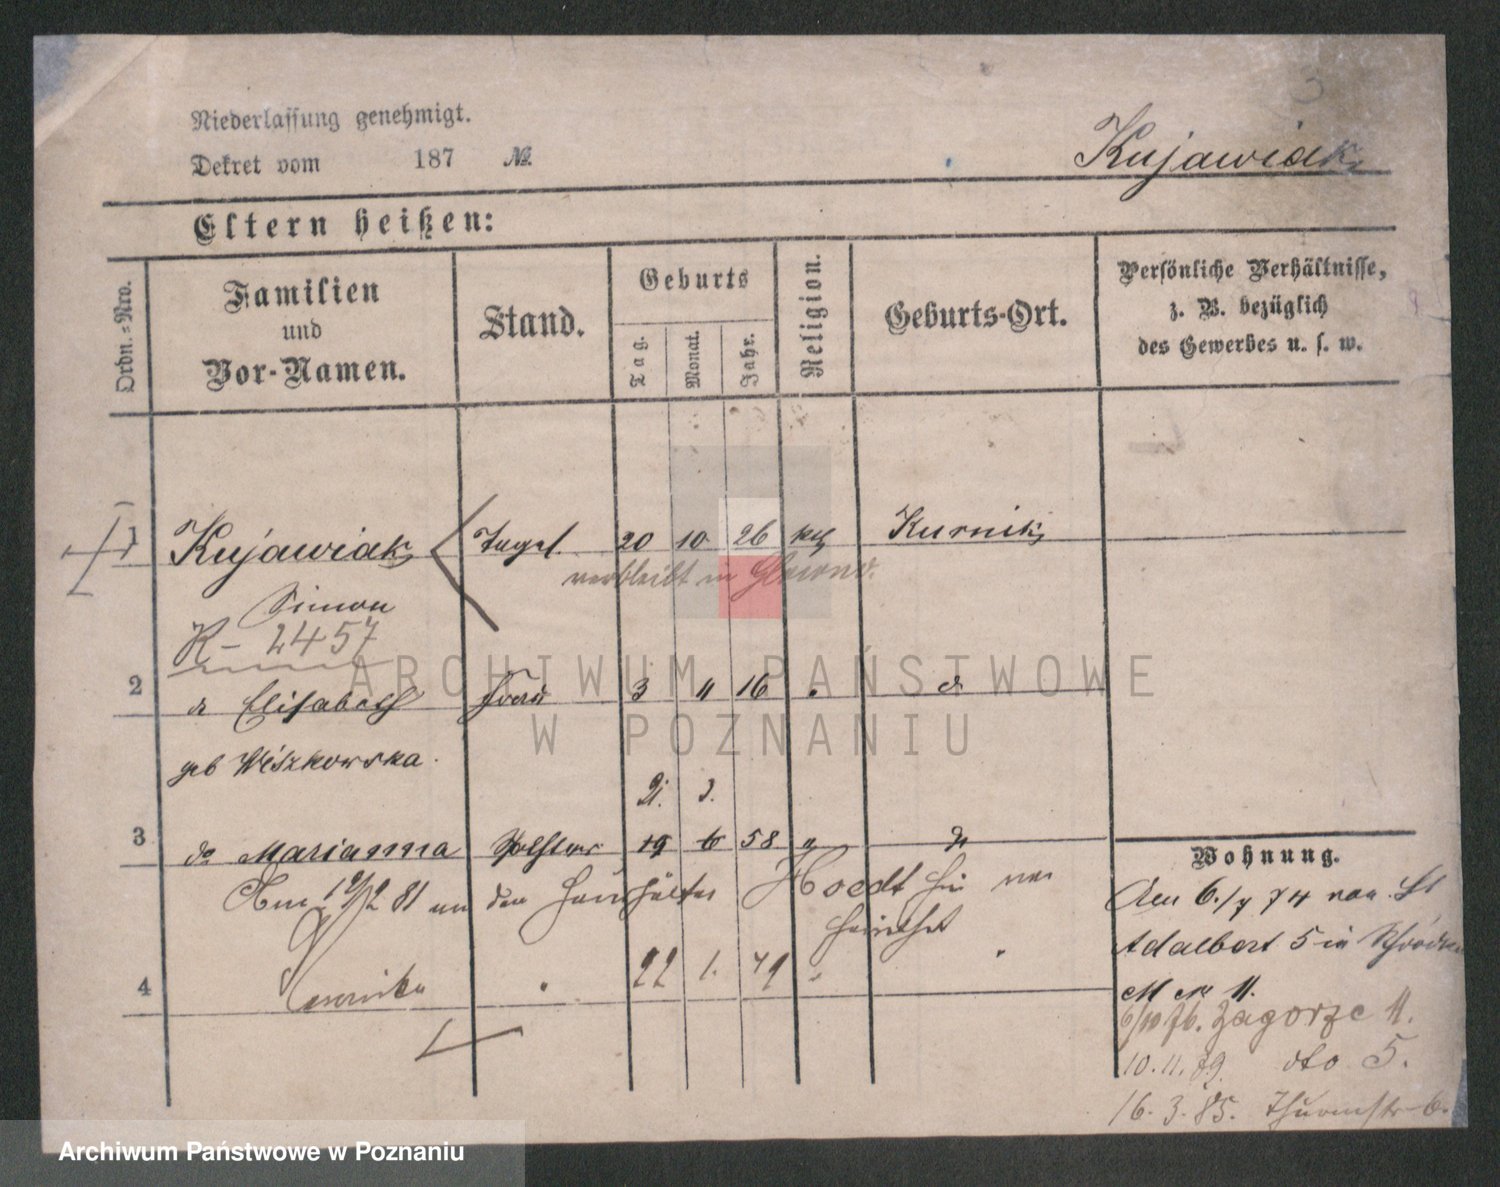 Niederlassung genehmigt.
Dekret vom 187 №
Kujawiak
Eltern heißen:
Ordn.=Nro.
Familien und Vor-Namen.
Stand.
Geburts
Tag. Monat. Jahr.
Religion.
Geburts-Ort.
Persönliche Verhältnisse,
z. B. bezüglich
des Gewerbes u. s. w.
1 Kujawiak Tagel. 20 10 26 kth Kurnik
verbleibt in
Simon
K- 2457
2 do Elisabeth Frau 3 11 16 " do
geb Wiszkowska.
21. 3.
3 do Marianna Tochter 19 6 58 " do
Am 19/2 81 an den Haushälter Hoedt hier ver
heirathet
4 22 1. 79 "
Wohnung.
Am 6./7 74 von St
Adalbert 5 in Schrodka
M No 11.
6/10 76. Zagorze 11.
10.11.79. dto 5.
16.3.85. Thurmstr 6.
ARCHIWUM PAŃSTWOWE
W POZNANIU
Archiwum Państwowe w Poznaniu